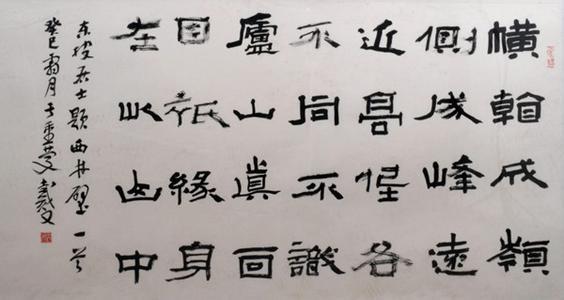 橫看成嶺
側成峰遠
近高低各
不同不識
廬山真面
目祇緣身
在此山中
东坡居士題西林壁一首
癸巳霜月于重慶